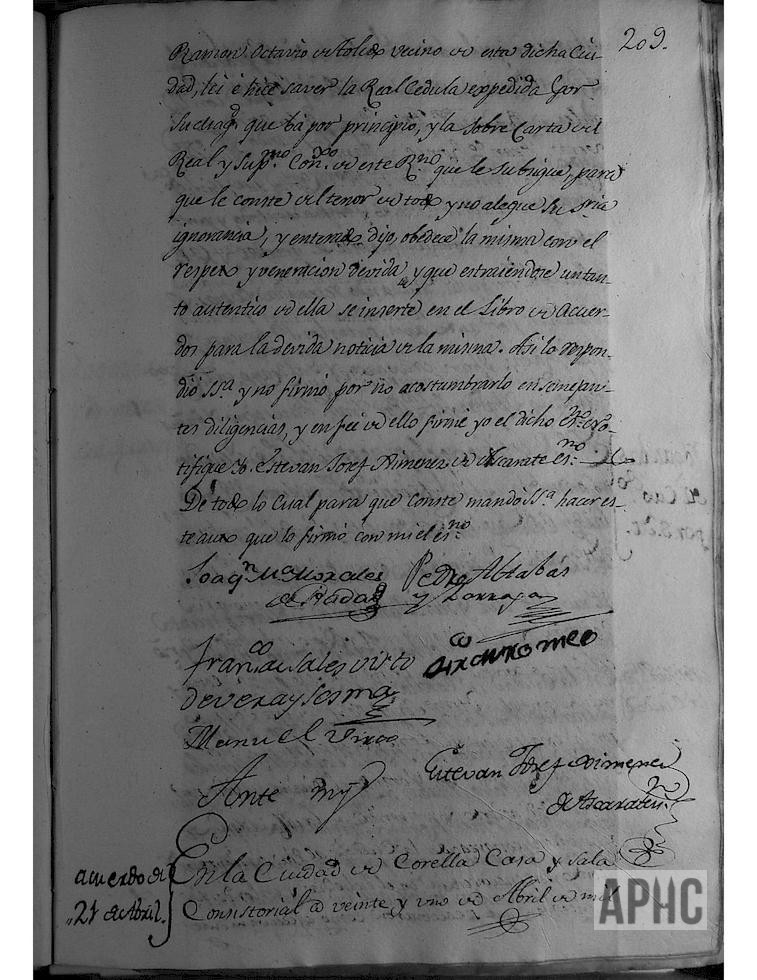 209.
Ramon Octavio de Toledo vecino de esta dicha Ciu-
dad, lei é hice saver la Real Cedula expedida por
Su Magd. que bá por principio, y la sobre Carta del
Real y Supmo. Conxo. de este Rno. que le subsigue, para
que le conste del tenor de todo y no alegue Su Sria
ignorancia, y enterado dijo, obedece la misma con el
respeto y veneracion devida, y que estraiendose un tan-
to autentico de ella se inserte en el Libro de Acuer-
dos para la devida noticia de la misma. Asi lo respon-
dió SSa. y no firmó por no acostumbrarlo en semejan-
tes diligencias, y en feé de ello firmé yo el dicho Esno. no-
tifique. Estevan Josef Ximenez de Ascarate Esno.
De todo lo cual para que conste mandó SSa. hacer es-
te auto que lo firmó con mi el esno.
Joaqn. Ma. Morales
de Rada
Pedro Ablabas
y
Franco. de Sales Virto
de Vera y Sesma
Manuel Virto
Ante my
Estevan Josef Ximenez
de Ascarate
acuerdo de
21 de Abril.
En la Ciudad de Corella Casa y Sala
Consistorial a veinte y uno de Abril de mil
APHC